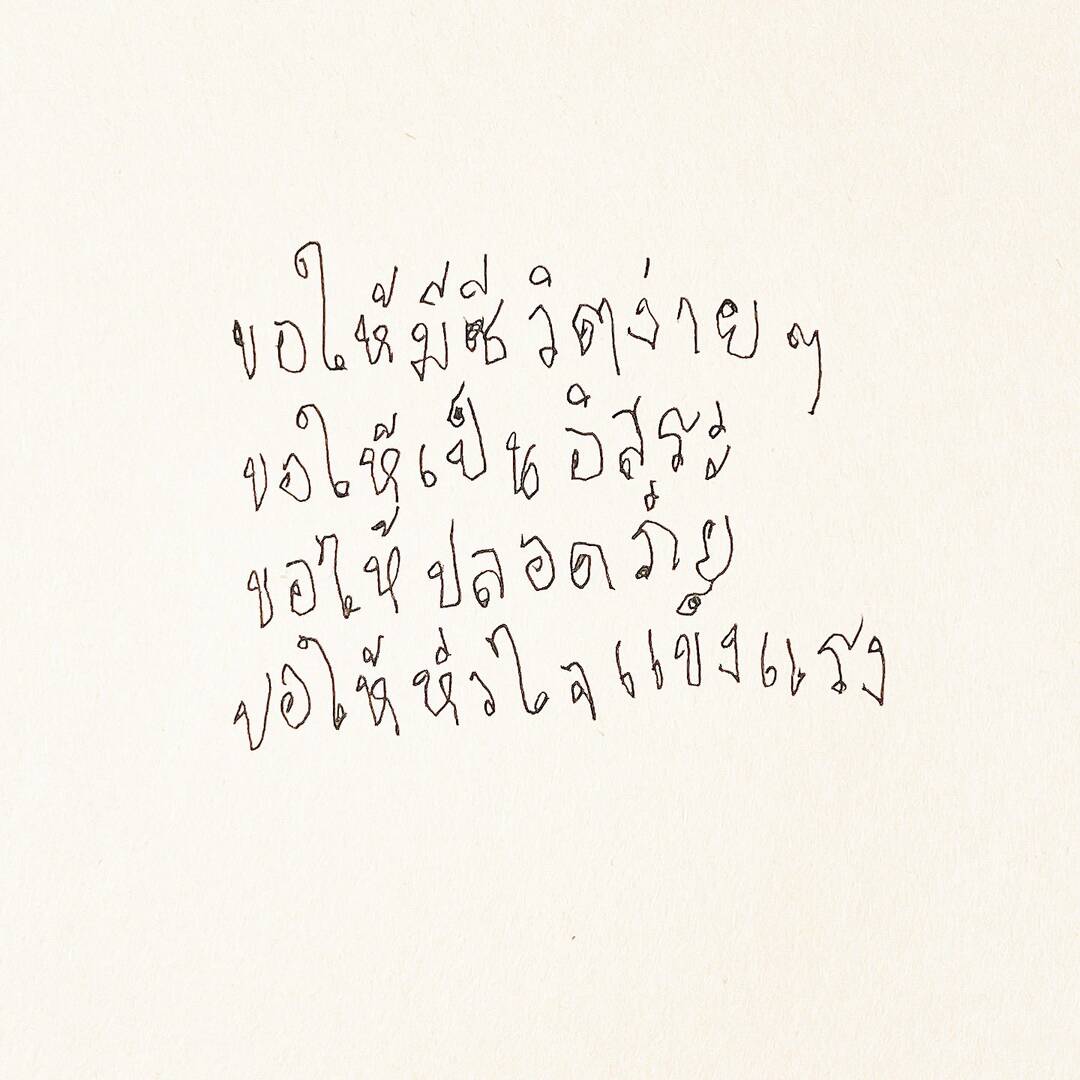 ขอให้มีชีวิตง่าย ๆ
ขอให้เป็นอิสระ
ขอให้ปลอดภัย
ขอให้หัวใจแข็งแรง